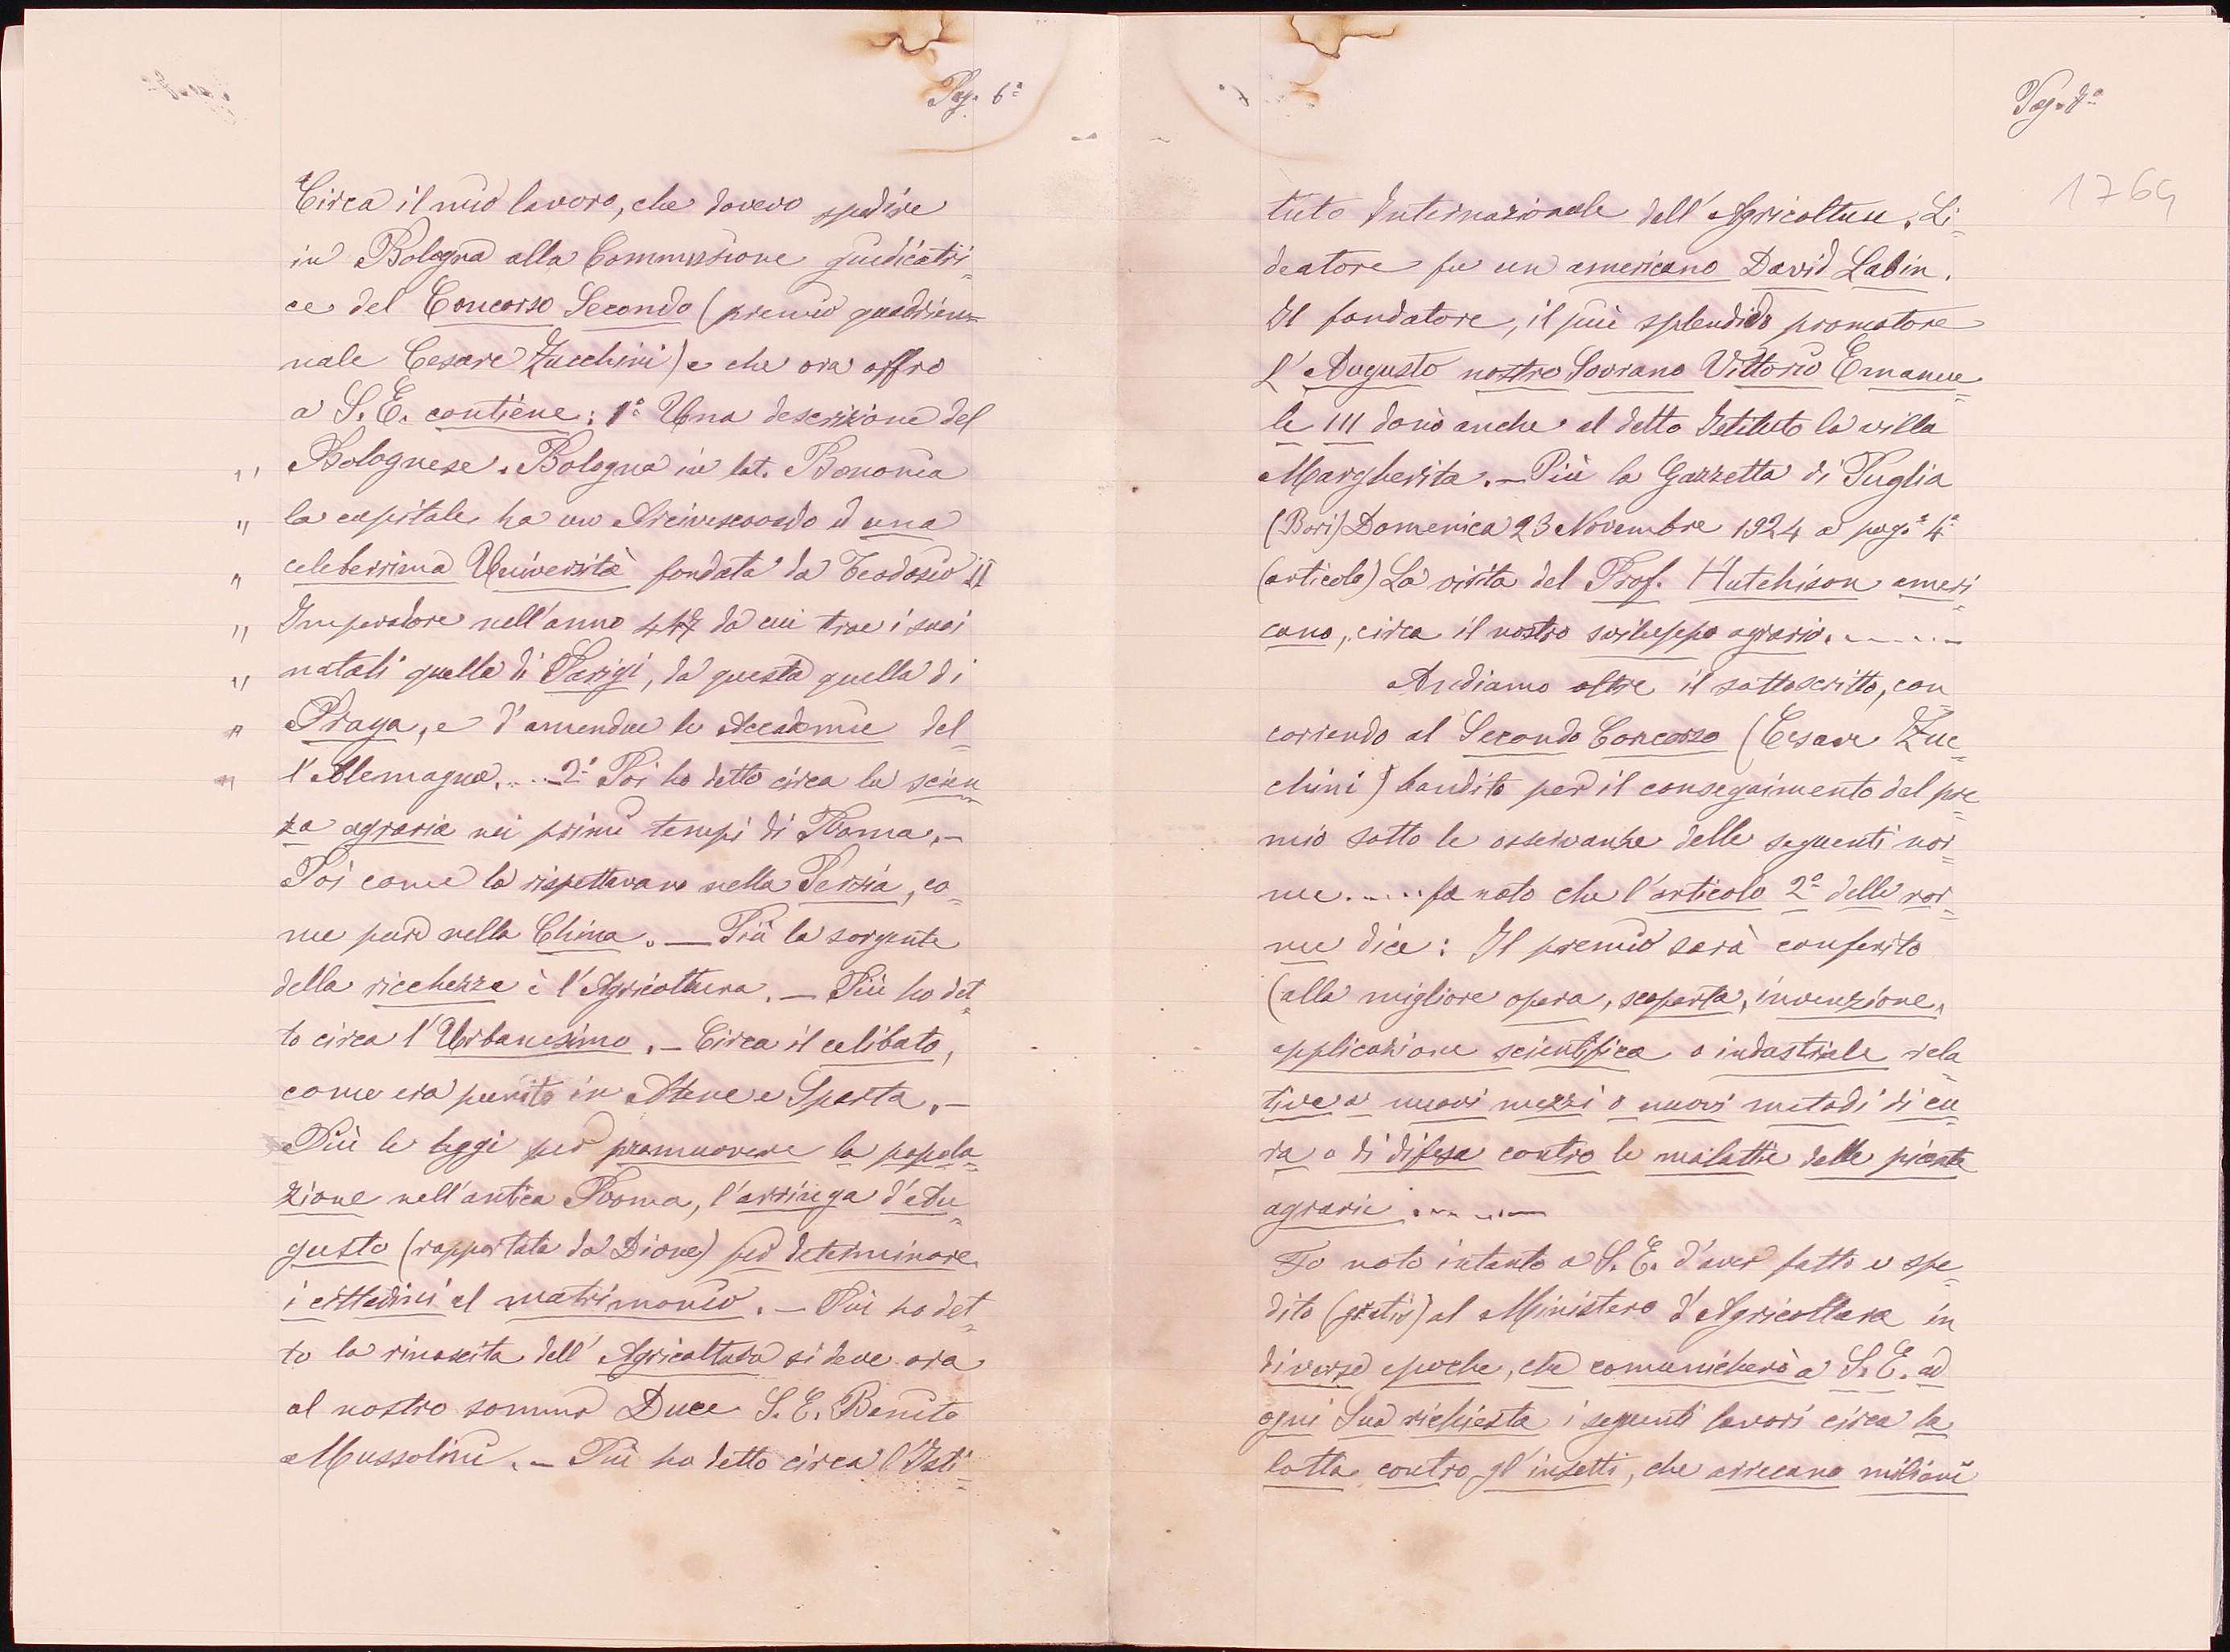 Pag. 6ª
Circa il mio lavoro, che dovevo spedire
in Bologna alla Commissione giudicatri=
ce del Concorso Secondo (premio quadrien=
nale Cesare Zucchini) e che ora offro
a S. E. contiene: 1º Una descrizione del
" Bolognese. Bologna in lat. Bononia
" la capitale ha un Arcivescovado ed una
" celeberrima Università fondata da Teodosio II
" Imperadore nell'anno 447 da cui trae i suoi
" natali quella di Parigi, da questa quella di
" Praga, e d'amendue le Accademie del=
" l'Alemagna.... 2º Poi ho detto circa la scien=
za agraria nei primi tempi di Roma. —
Poi come la rispettavano nella Persia, co=
me pure nella China. — Più la sorgente
della ricchezza è l'Agricoltura. — Più ho det=
to circa l'Urbanesimo. — Circa il celibato,
come era punito in Atene e Sparta. —
Più le leggi per promuovere la popola=
zione nell'antica Roma, l'arringa d'Au=
gusto (rapportata da Dione) per determinare
i cittadini al matrimonio. — Più ho det=
to la rinascita dell'Agricoltura si deve ora
al nostro sommo Duce S. E. Benito
Mussolini. — Più ho detto circa l'Isti=
Pag. 7ª
1764
tuto Internazionale dell'Agricoltura. L'i=
deatore fu un americano David Labin.
Il fondatore, il più splendido promotore
l'Augusto nostro Sovrano Vittorio Emanue=
le III donò anche al detto Istituto la villa
Margherita. — Più la Gazzetta di Puglia
(Bari) Domenica 23 Novembre 1924 a pag.ª 4ª
(articolo) La visita del Prof. Hutchison ameri=
cano, circa il nostro sviluppo agrario. . . . . .
Andiamo oltre il sottoscritto, con=
correndo al Secondo Concorso (Cesare Zuc=
chini) bandito per il conseguimento del pre=
mio sotto le osservanze delle seguenti nor=
me..... fa noto che l'articolo 2º delle nor=
me dice: Il premio sarà conferito
(alla migliore opera, scoperta, invenzione,
applicazione scientifica o industriale rela=
tiva a nuovi mezzi o nuovi metodi di cu=
ra o di difesa contro le malattie delle piante
agrarie . . . . . .
Fo noto intanto a S. E. d'aver fatto e spe=
dito (gratis) al Ministero d'Agricoltura in
diverse epoche, che comunicherò a S. E. ad
ogni Sua richiesta i seguenti lavori circa la
lotta contro gl'insetti, che arrecano milioni